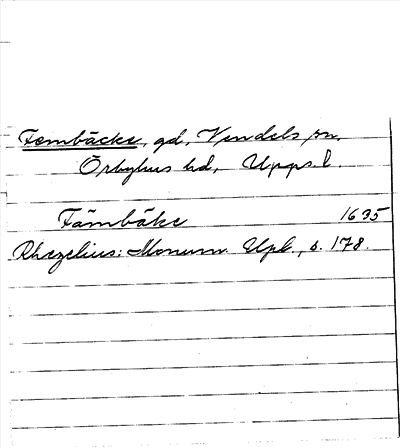 Fembäcke, gd, Vendels sn,
Örbyhus hd, Upps l.
Fämbäke 1635
Rhezelius: Monum. Upl., s. 178.